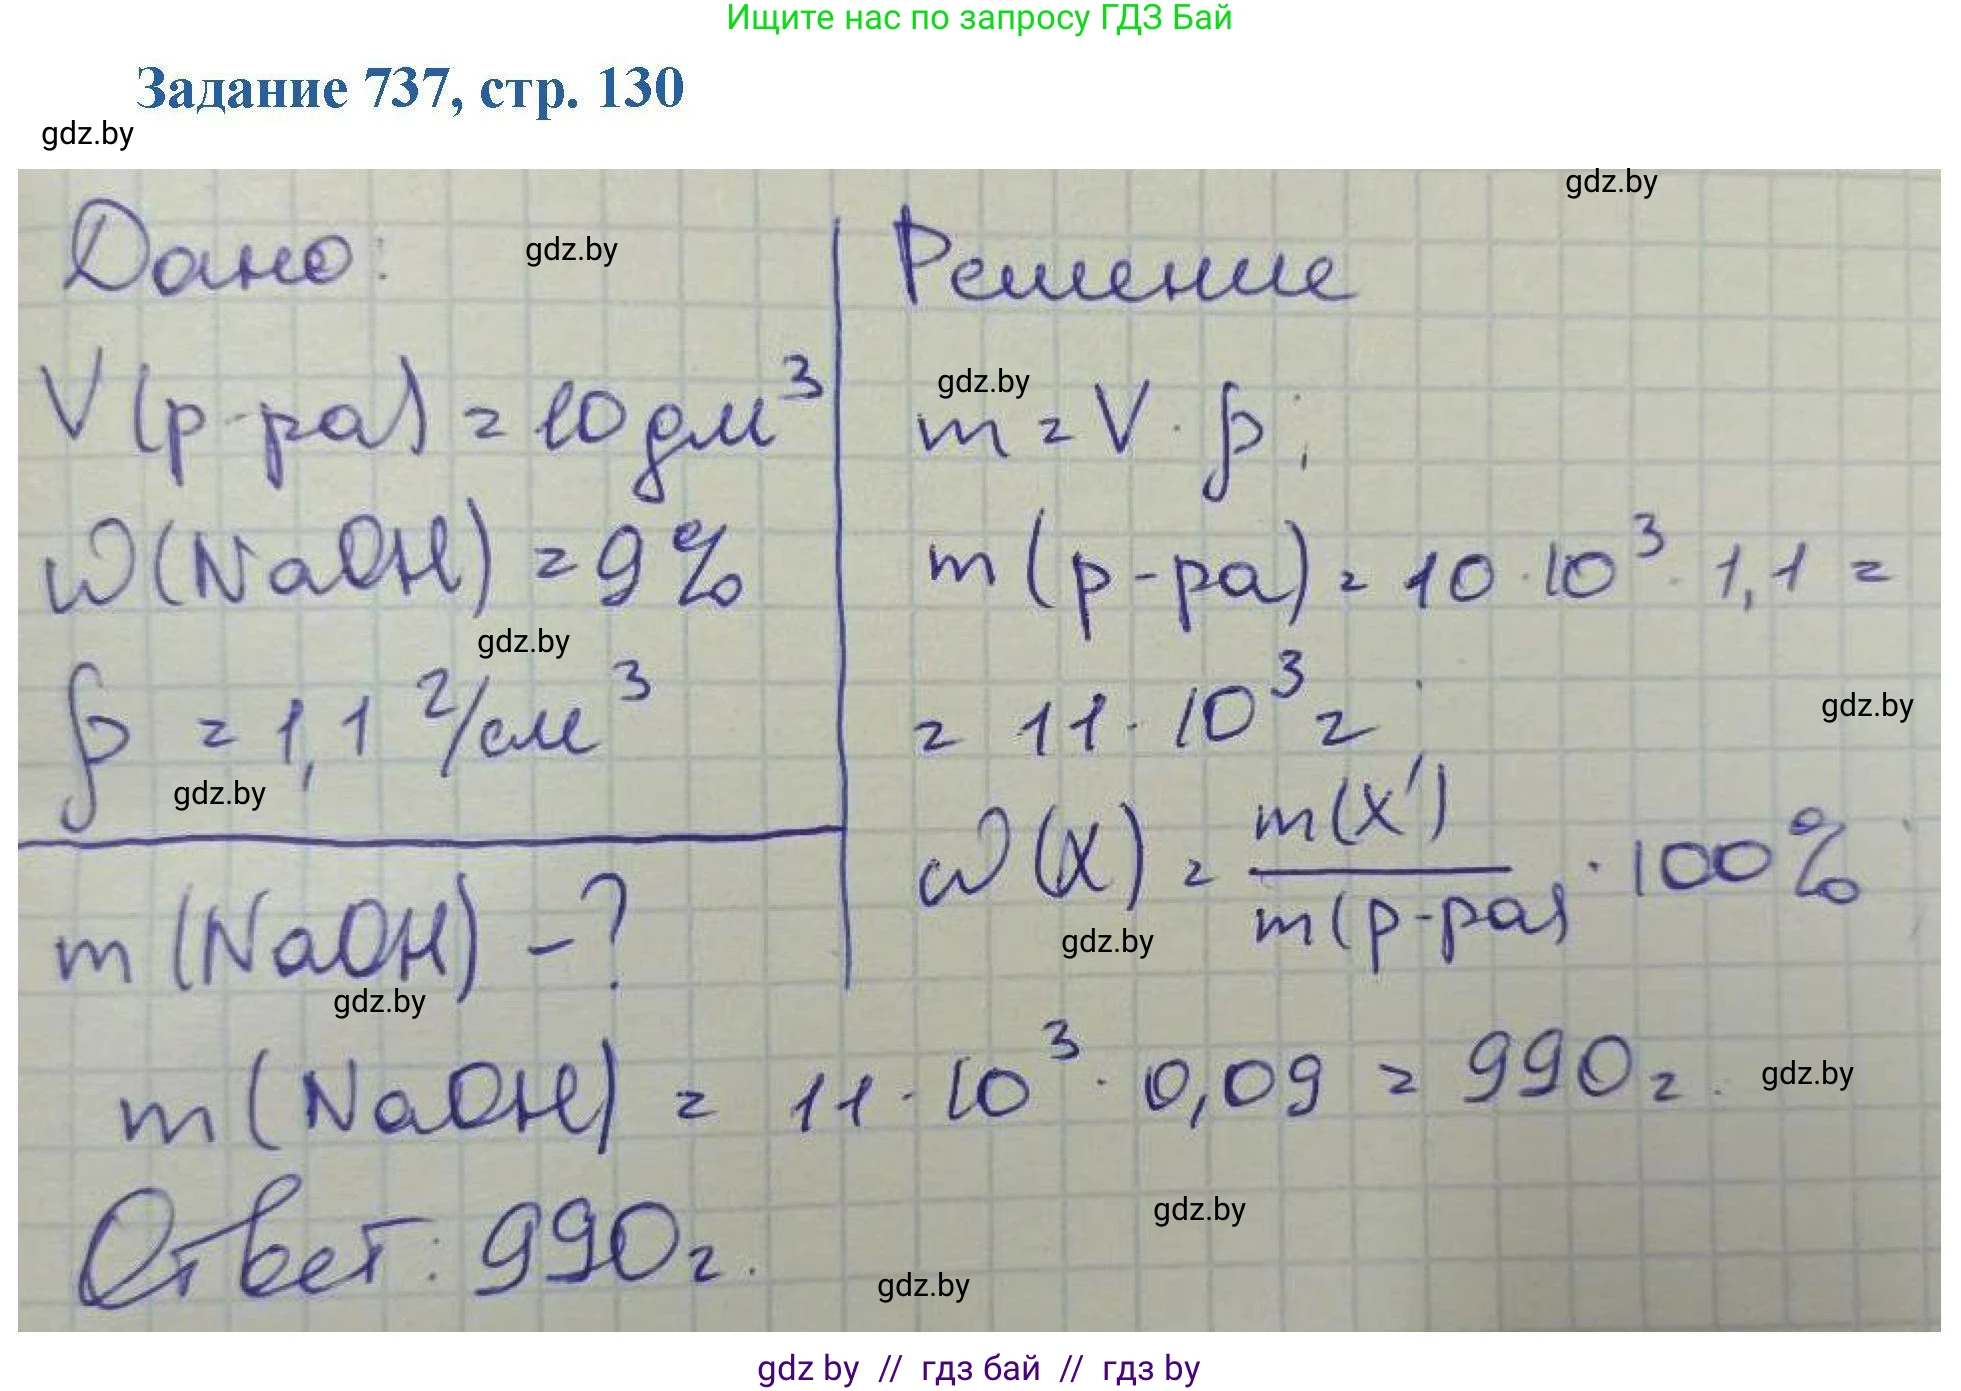 Ищите нас по запросу ГДЗ Бай
Задание 737, стр. 130
gdz.by
gdz.by
Дано:
gdz.by
V(р-ра) = 10 дм³
ω(NaOH) = 9%
gdz.by
ρ = 1,1 г/см³
gdz.by
m(NaOH) - ?
gdz.by
Решение
gdz.by
m = V · ρ;
m(р-ра) = 10 · 10³ · 1,1 =
= 11 · 10³ г;
gdz.by
ω(X) = m(X) / m(р-ра) · 100%;
gdz.by
m(NaOH) = 11 · 10³ · 0,09 = 990 г.
gdz.by
gdz.by
Ответ: 990 г.
gdz.by
gdz by // гдз бай // гдз by